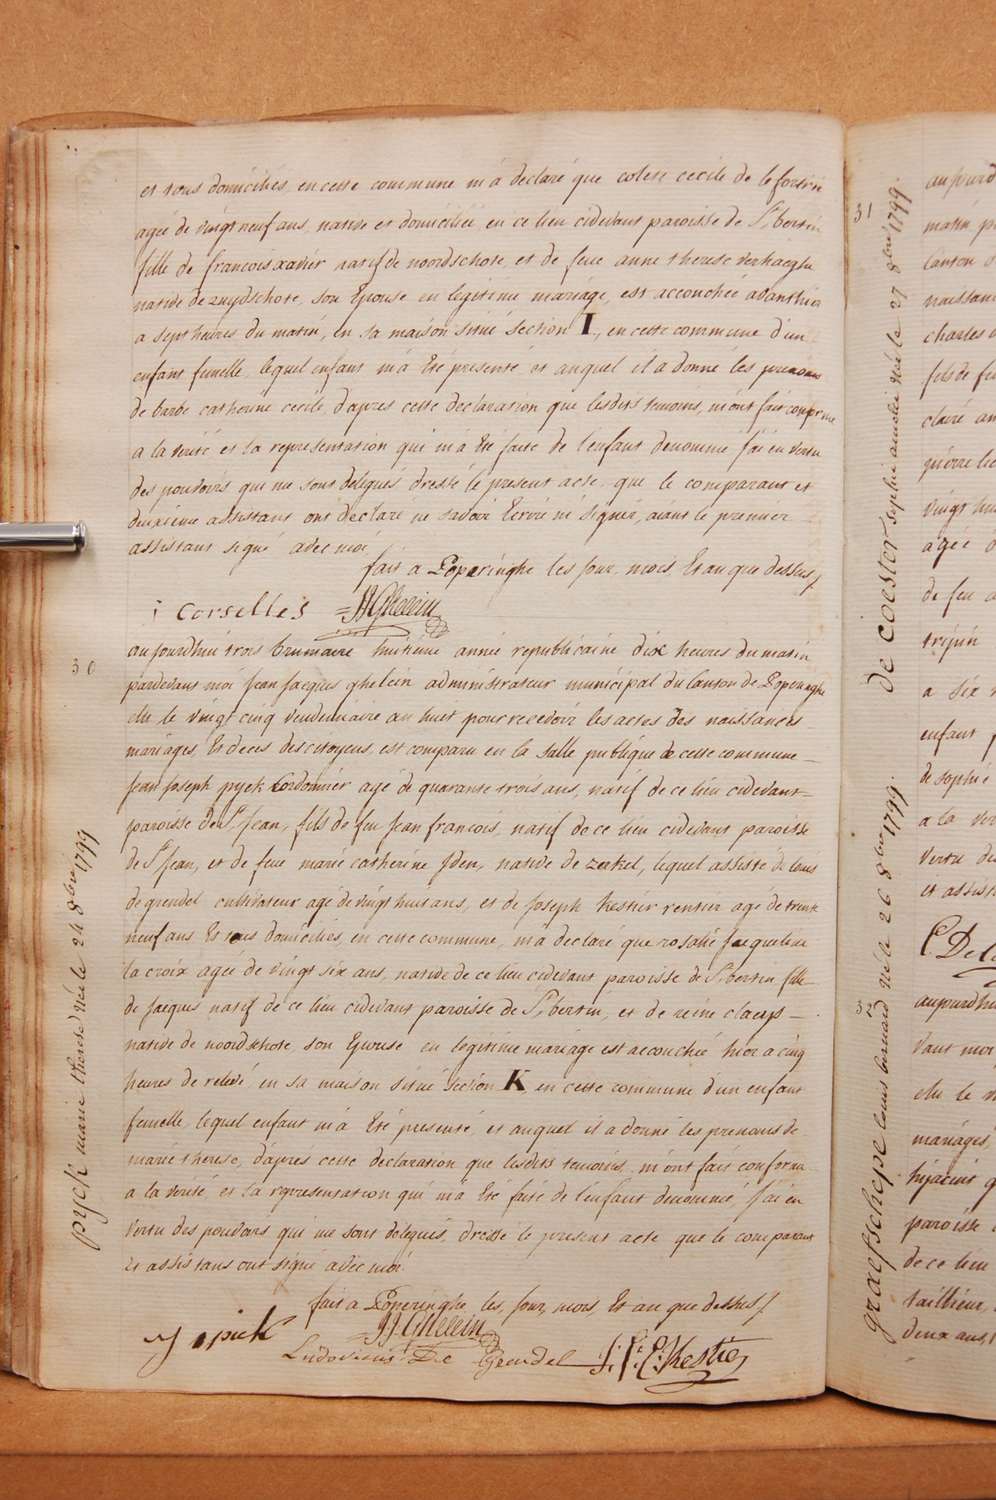 et tous domiciliés, en cette commune m'a declaré que colete cecile de le fortrie
agée de vingt neuf ans, native et domiciliée en ce lieu cidevant paroisse de St. bertin
fille de francois xavier natif de noordschote, et de feue anne therese verhaeghe
native de zuydschote, son Epouse en legitime mariage, est accouchée avanthier
a sept heures du matin, en sa maison situé section I, en cette commune d'un
enfant femelle, lequel enfant m'a Eté presenté et auquel il a donné les prenoms
de barbe catherine cecile, d'apres cette declaration que lesdits temoins, m'ont fait conforme
a la verité et la representation qui m'a Eté faite de l'enfant denommé j'ai en vertu
des pouvoirs qui me sont delegués dressé le present acte que le comparant et
deuxieme assistant ont declaré ne savoir Ecrire ni signer, aiant le premier
assistant signé avec moi
fait a Poperinghe les jour, mois Et an que dessus /
i Corselles JJGhelein
30
aujourdhui trois brumaire huitieme année republicaine dix heures du matin
pardevant moi Jean Jacques ghelein administrateur municipal du Canton de Poperinghe
elu le vingt cinq vendemiaire an huit pour recevoir les actes des naissances
mariages, Et deces des citoyens, est comparu en la salle publique de cette commune
Jean Joseph pyck Cordonnier agé de quarante trois ans, natif de ce lieu cidevant
paroisse de St. Jean, fils de feu Jean francois, natif de ce lieu cidevant paroisse
de St Jean, et de feue marie catherine Iden, native de zerkel, lequel assisté de louis
de grendel cultivateur agé de vingt huit ans, et de Joseph Kestier rentier agé de trente
neuf ans Et tous domiciliés, en cette commune, m'a declaré que rosalie jaequeline
la croix agée de vingt six ans, native de ce lieu cidevant paroisse de St. bertin fille
de Jacques natif de ce lieu cidevant paroisse de St. bertin, et de reine claeys
native de noordschote, son Epouse en legitime mariage est accouchée hier a cinq
heures de relevé en sa maison situé section K en cette commune d'un enfant
femelle, lequel enfant m'a Eté presenté, et auquel il a donné les prenoms de
marie therese, d'apres cette declaration que lesdits temoins, m'ont fait conforme
a la verité et la representation qui m'a Eté faite de l'enfant denommé, j'ai en
vertu des pouvoirs qui me sont delegués, dressé le present acte que le comparant
Et assistans ont signé avec moi
fait a Poperinghe, les jour, mois Et an que dessus /
J J pick JJGhelein
Ludovicus De Grendel Kestier
pyck marie therese née le 24 8bre 1799
31
de coester sophie née le 27 8bre 1799.
aujourd
matin
Canton
naissan
charles
fils de fe
claré
vingt hui
agée
de feu
a six
enfant
de sophie
a la ver
vertu de
et assist
32
graefschepe louis bernard né le 26 8bre 1799.
aujourdhui
vant moi
elu le
mariages,
paroisse
de ce lieu
tailleur,
deux ans,